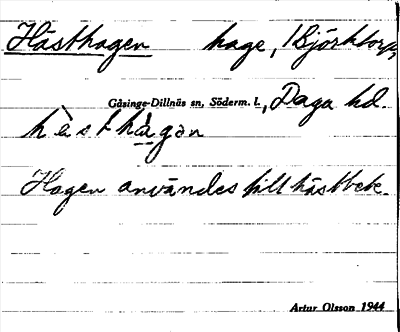 Hästhagen hage, Björktorp,
Gåsinge-Dillnäs sn, Söderm. l., Daga hd
hèsthàgən
Hagen användes till hästbete.
Artur Olsson 1944